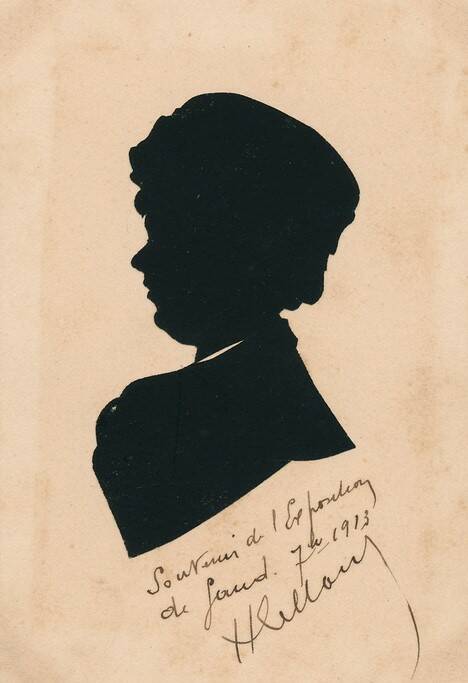 Souvenir de l'Exposition
de Gand. 7bre 1913